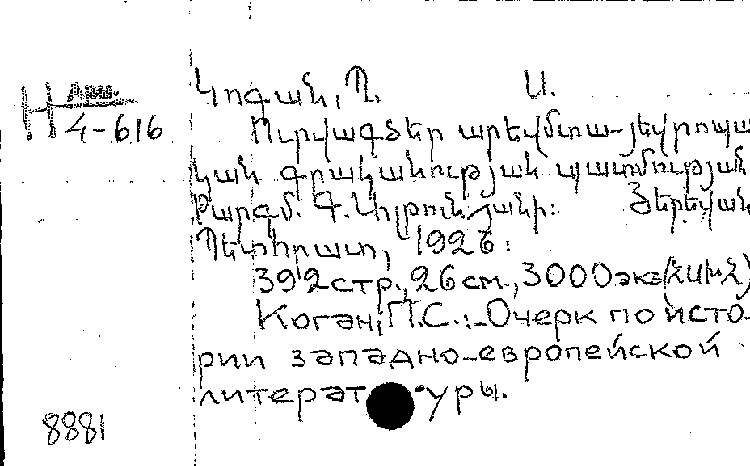 Կոգան, Պ. Ս.
Н 4-616
Ուրվագծեր արեվմտա-յեվրոպա
կան գրականության պատմության
Թարգմ. Գ. Նիլրունյանի: Յերեվան
Պետհրատ, 1926:
392 стр., 26 см., 3000 экз (ՀՍԽՀ)
Коган, П.С.: Очерк по исто-
рии западно-европейской
литературы.
8881